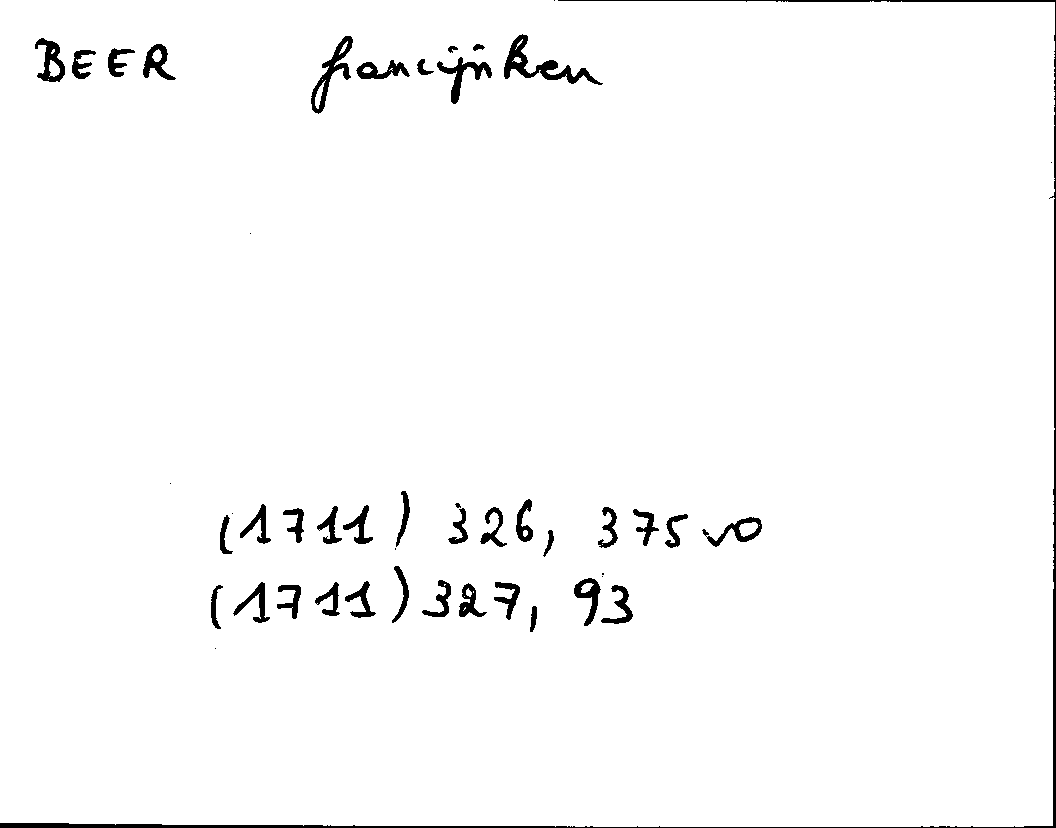 BEER francijnken
(1711) 326, 375 vo
(1711) 327, 93